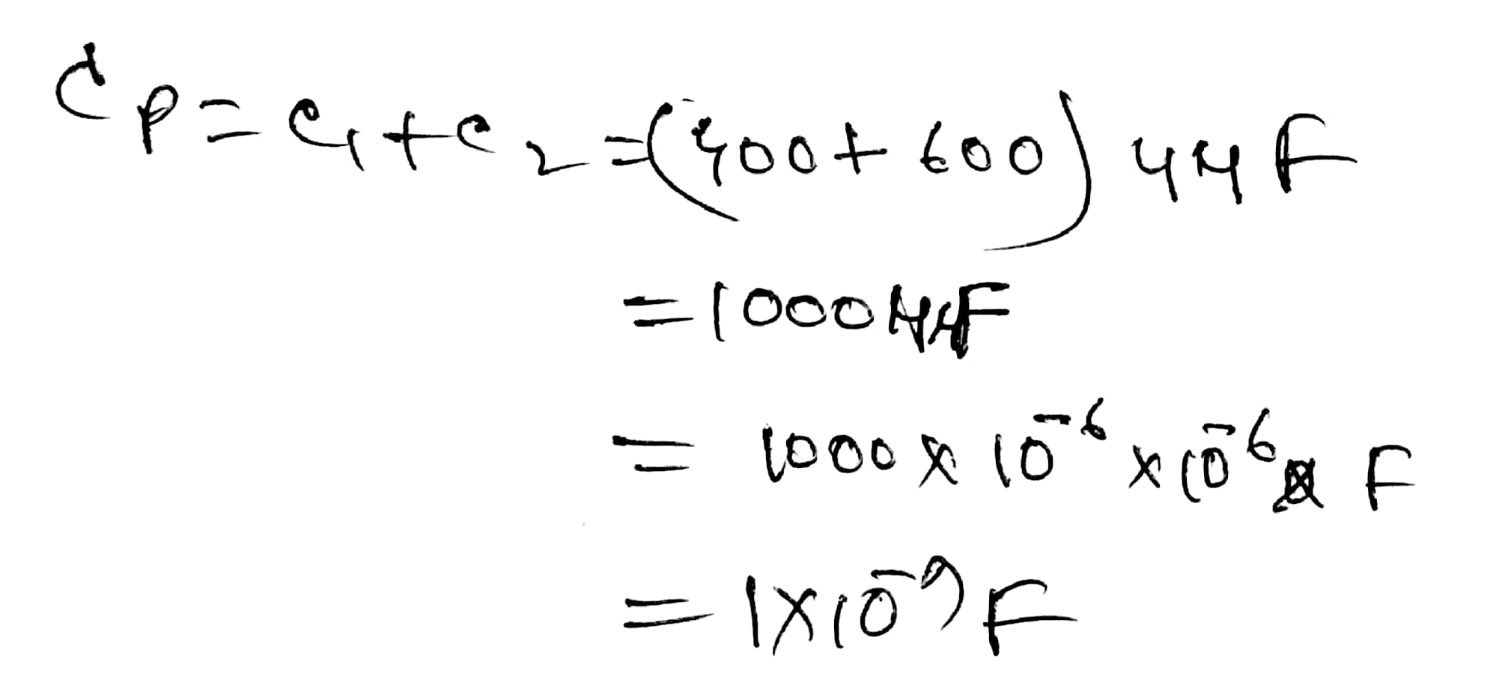 Cp = C1 + C2 = (400 + 600) μμF
= 1000 μμF
= 1000 × 10⁻⁶ × 10⁻⁶ F
= 1 × 10⁻⁹ F